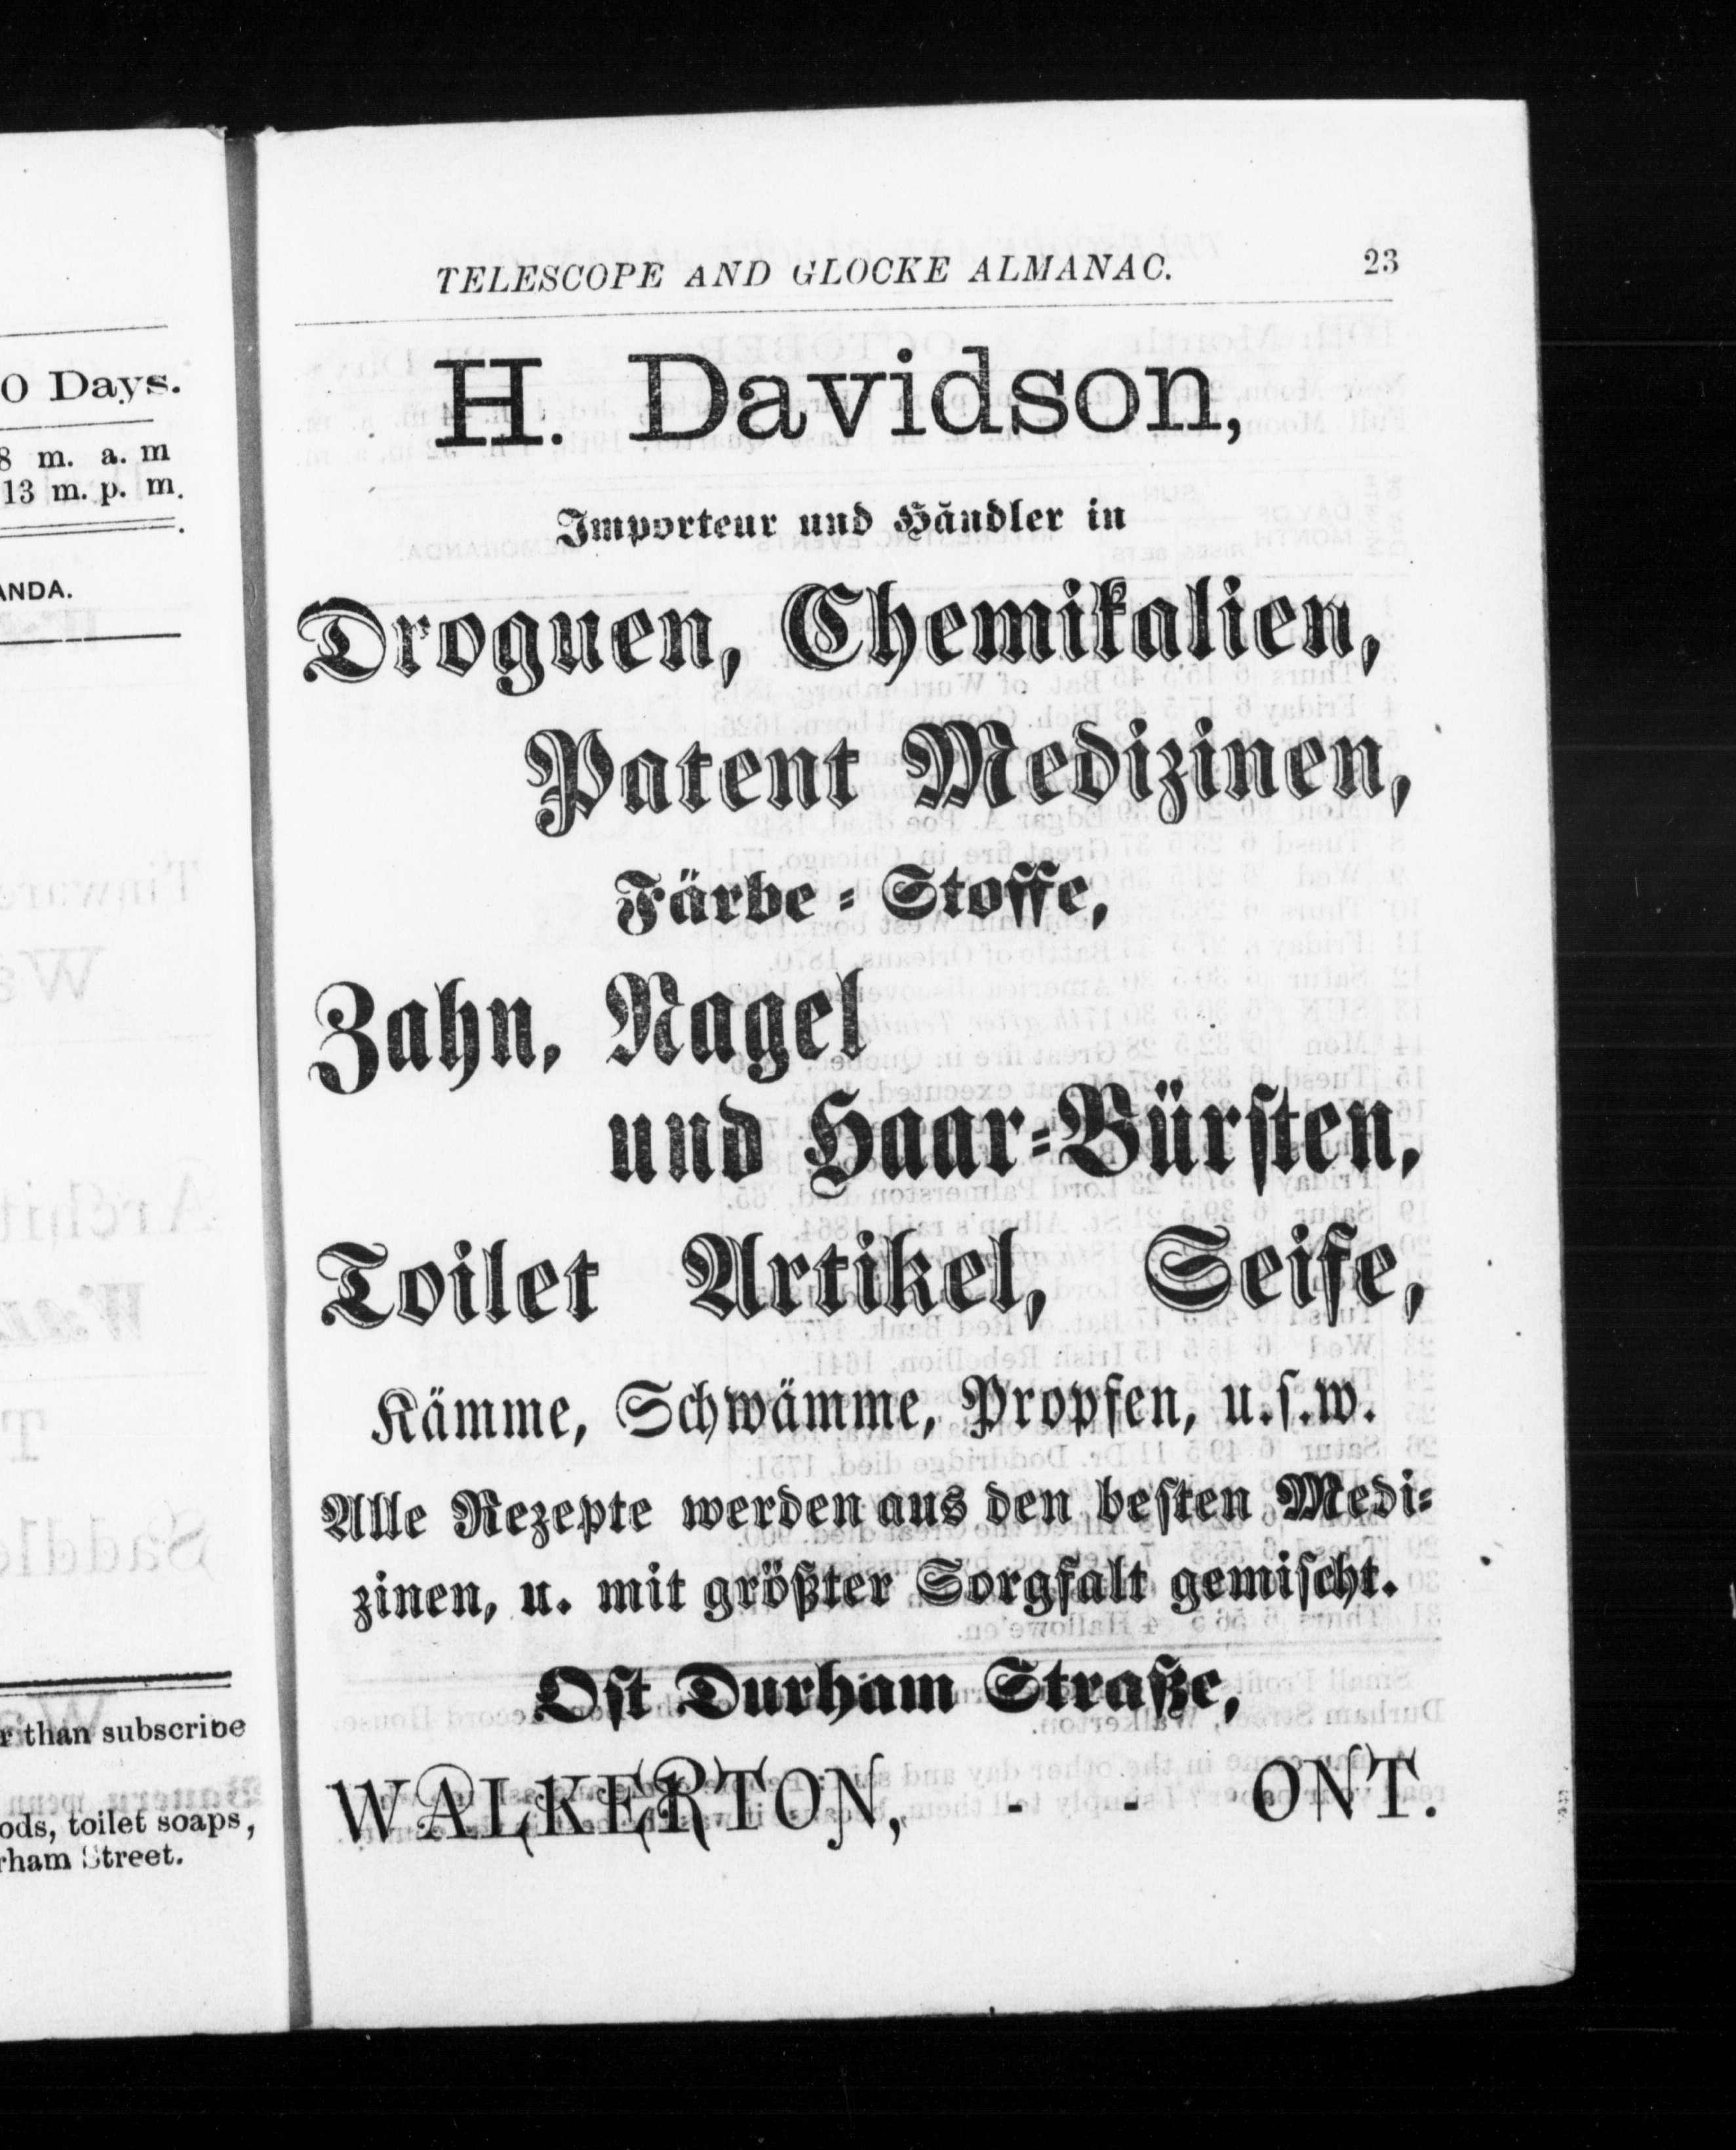 0 Days.
8 m. a. m
13 m. p. m.
ANDA.
r than subscribe
ods, toilet soaps,
rham Street.
TELESCOPE AND GLOCKE ALMANAC. 23
H. Davidson,
Importeur und Händler in
Droguen, Chemikalien,
Patent Medizinen,
Färbe-Stoffe,
Zahn, Nagel
und Haar-Bürsten,
Toilet Artikel, Seife,
Kämme, Schwämme, Propfen, u.s.w.
Alle Rezepte werden aus den besten Medi-
zinen, u. mit größter Sorgfalt gemischt.
Ost Durham Straße,
WALKERTON, - - ONT.